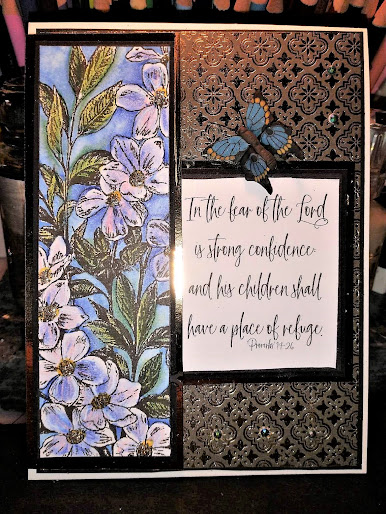 In the fear of the Lord
is strong confidence:
and his children shall
have a place of refuge.
Proverbs 14:26